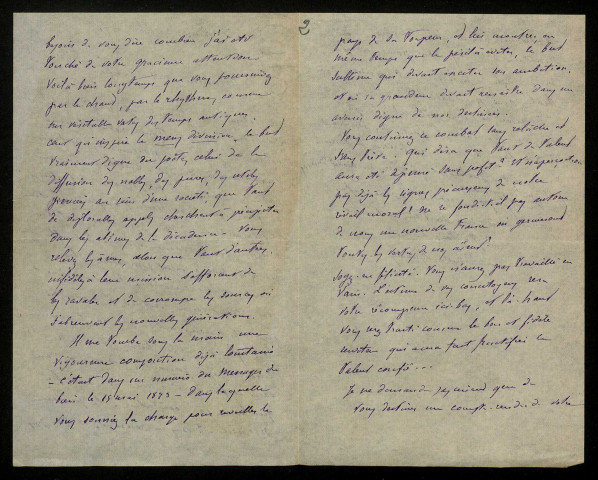 2
besoin de vous dire combien j'ai été
touché de votre gracieuse attention
Voilà bien longtemps que vous poursuivez
par le chant, par le rhythme, comme
un véritable vates des temps antiques,
celui qu'inspire la mens divinior, le but
vraiment digne du poète, celui de la
diffusion des nobles, des pures, des utiles
pensées au sein d'une société que tant
de détestables appels cherchent à précipiter
dans les abîmes de la décadence. Vous
relevez les âmes, alors que tant d'autres,
infidèles à leur mission s'efforcent de
les ravaler et de corrompre les sources où
s'abreuvent les nouvelles générations.
Il me tombe sous la main une
vigoureuse composition déjà lointaine
- c'était dans un numéro du Messager de
Paris le 15 mai 1873 - dans laquelle
vous sonniez la charge pour réveiller le
pays de sa torpeur, et lui montrer, en
même temps que le péril à éviter, le but
sublime qui devait exciter son ambition,
et où sa grandeur devait renaître dans un
avenir digne de nos destinées.
Vous continuez ce combat sans relâche et
sans trêve. Qui dira que tant de talent
aura été dépensé sans profit? N'aperçoit-on
pas déjà les signes précurseurs de notre
réveil moral? Ne se produit-il pas autour
de nous une nouvelle France où germent
toutes les vertus de nos aïeux!
Soyez-en félicité. Vous n'aurez pas travaillé en
vain. L'estime de vos concitoyens sera
votre récompense ici-bas, et là-haut
vous serez traité comme le bon et fidèle
serviteur qui aura fait fructifier le
talent confié...
Je ne demande pas mieux que de
vous destiner un compte-rendu de votre